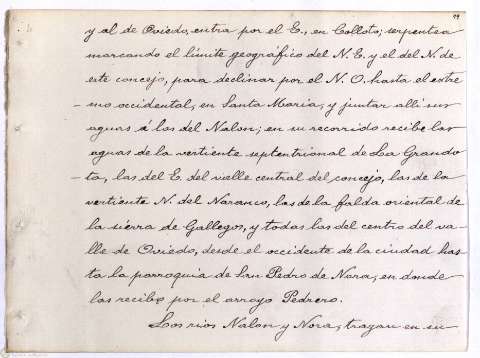 y al de Oviedo, entra por el E., en Colloto; serpentea
marcando el límite geográfico del N.E. y el del N. de
este concejo, para declinar por el N.O. hasta el extre
mo occidental, en Santa María, y juntar allí sus
aguas á las del Nalon; en su recorrido recibe las
aguas de la vertiente septentrional de La Grando
ta, las del E. del valle central del concejo, las de la
vertiente N. del Naranco, las de la falda oriental de
la sierra de Gallegos, y todas las del centro del va
lle de Oviedo, desde el occidente de la ciudad has
ta la parroquia de San Pedro de Nora, en donde
las recibe por el arroyo Pedrero.
Los rios Nalon y Nora, trazan en su